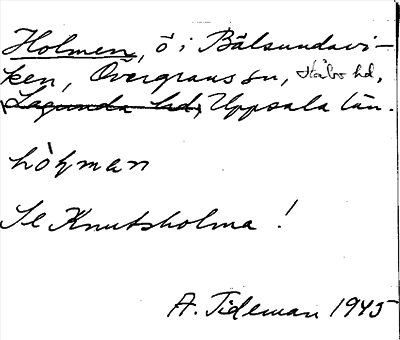 Holmen, ö i Bälsundavi-
ken, Övergrans sn, Håbo hd,
Lagunda hd, Uppsala län.
hòƚman
Se Knutsholma!
A. Tideman 1945